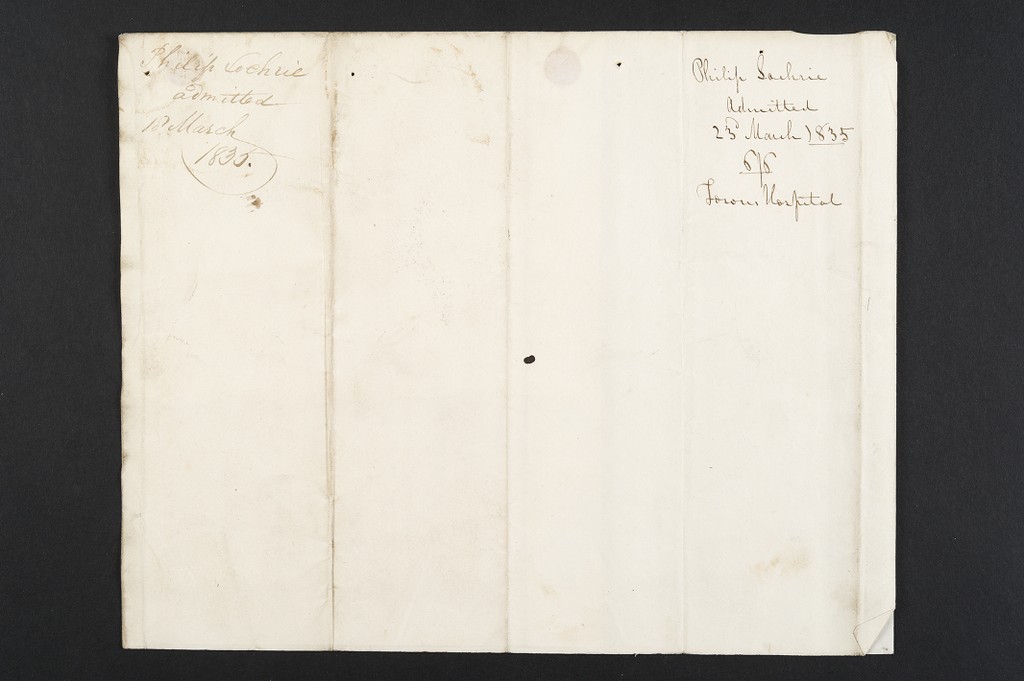 Philip Lochrie
admitted
March
1835.
Philip Lochrie
Admitted
23d March 1835
6/6
Towns Hospital